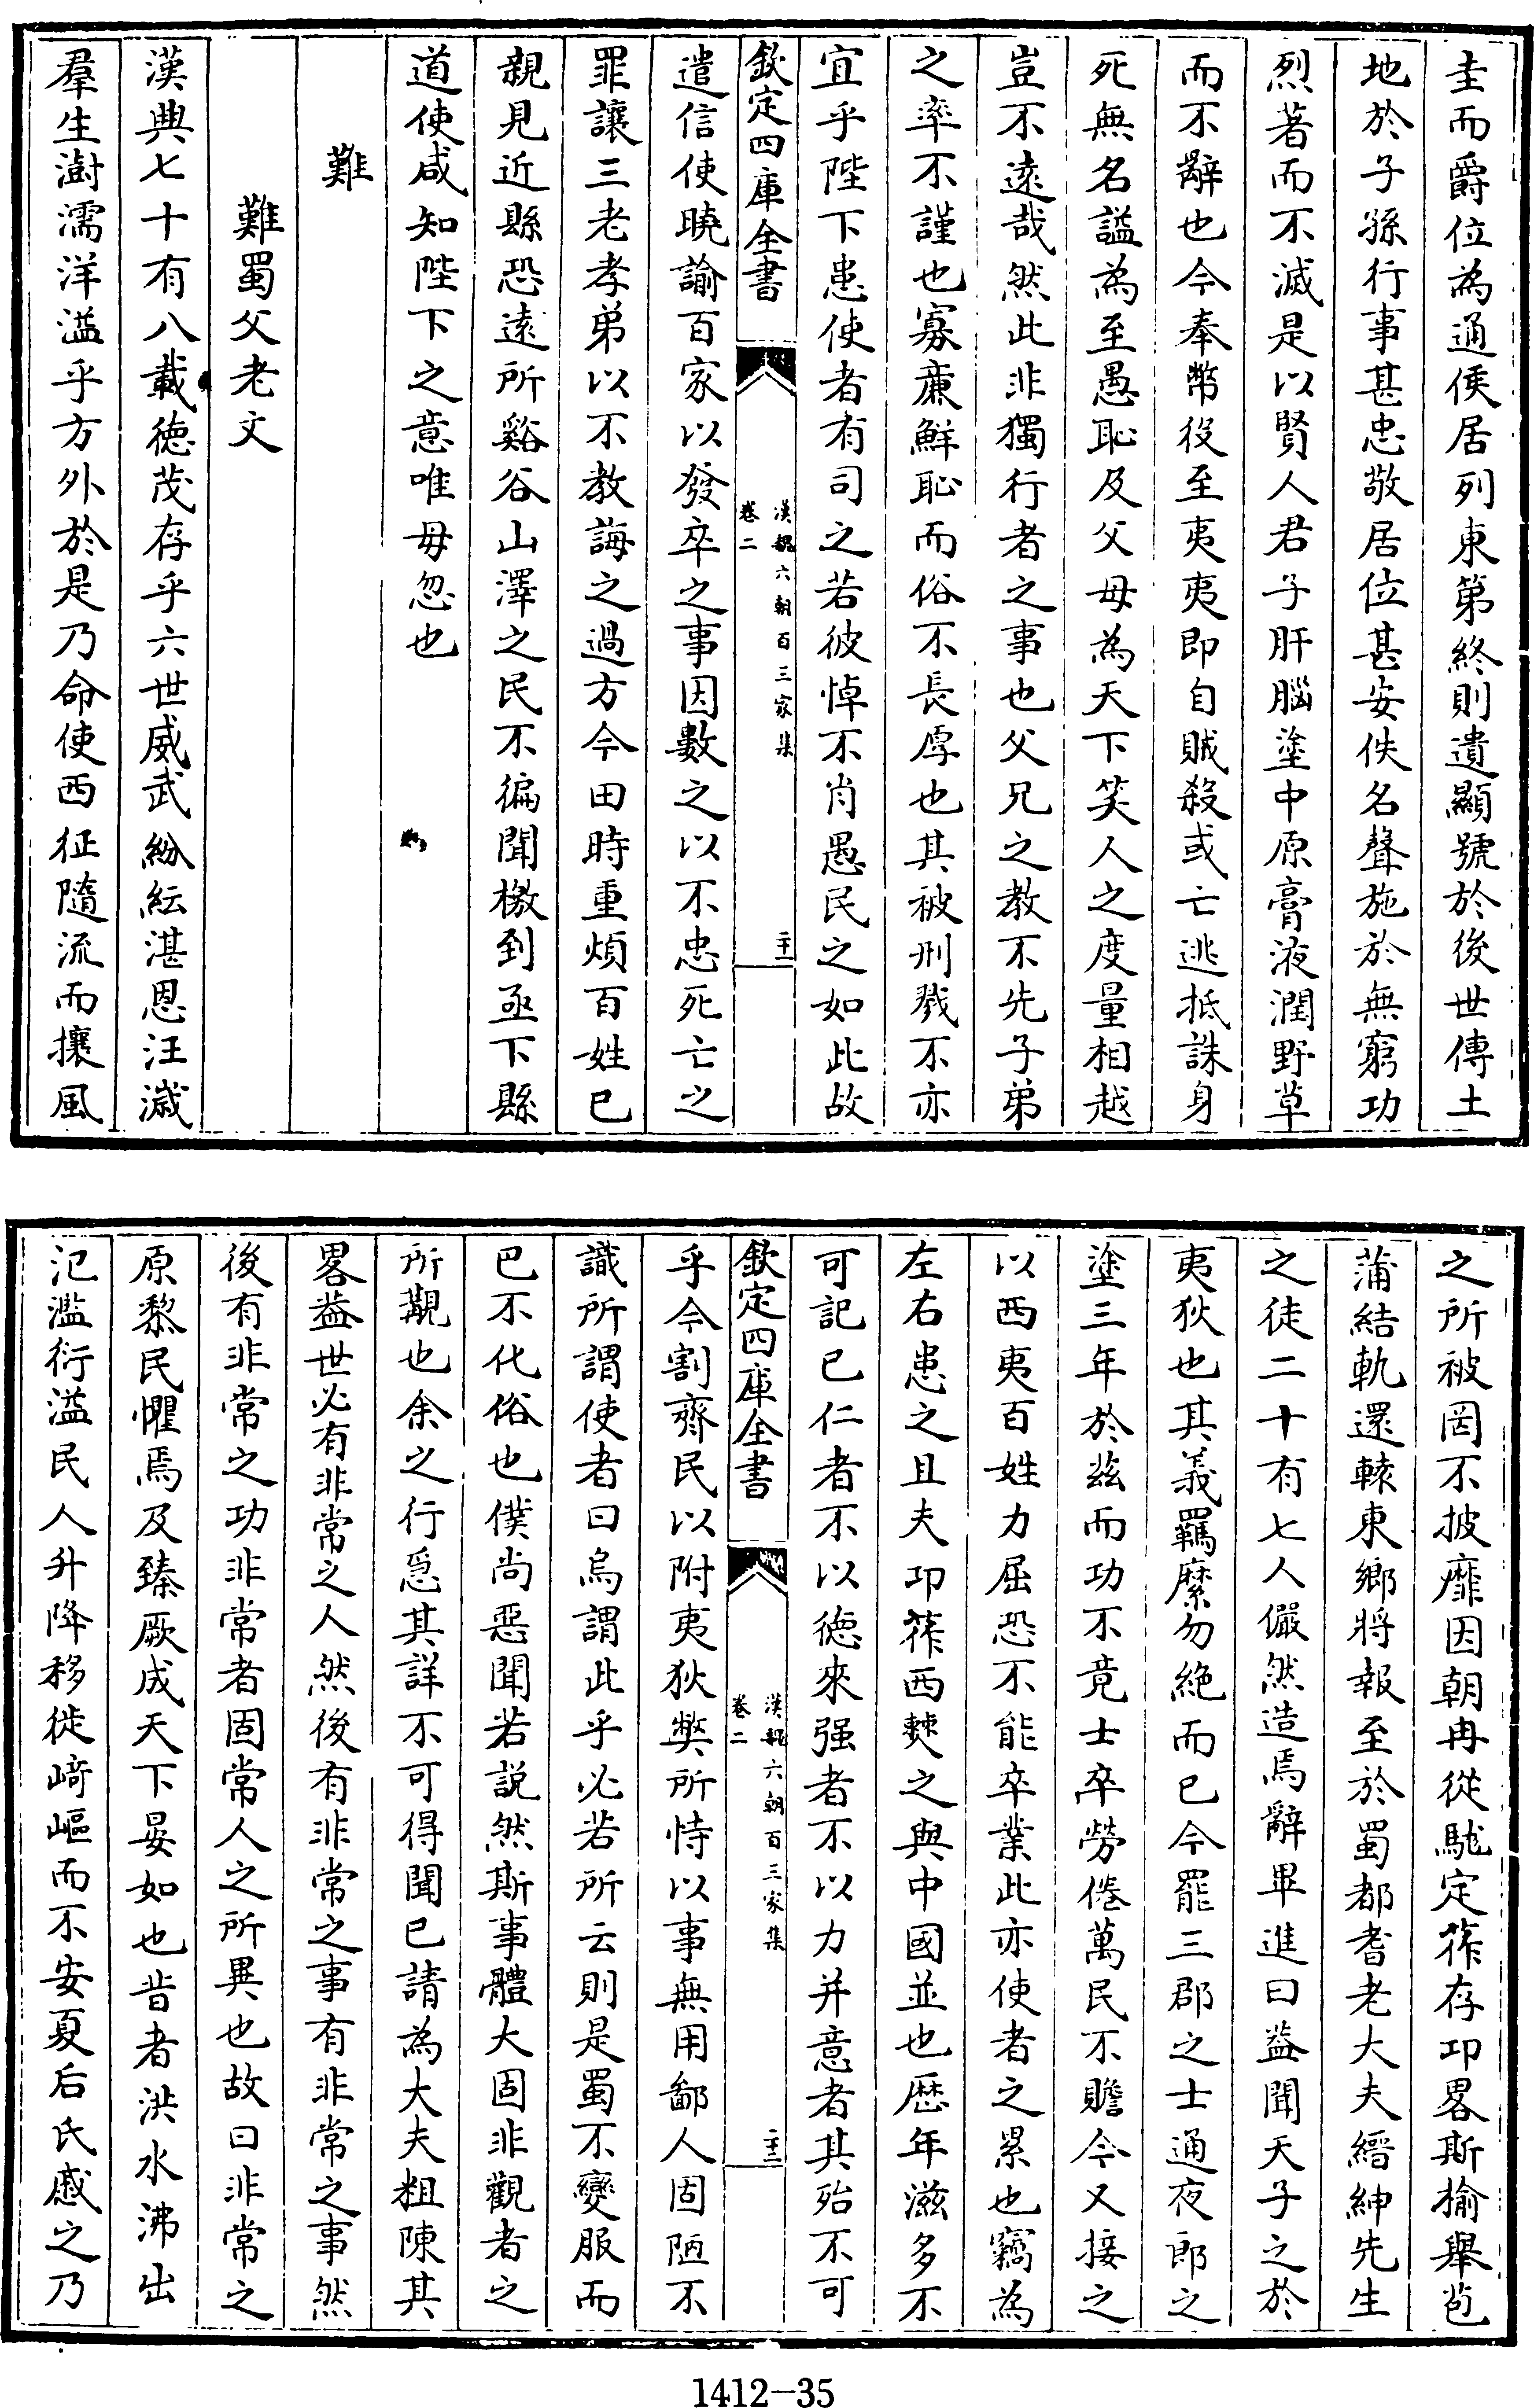 圭而爵位為通侯居列東第終則遺顯號於後世傳土
地於子孫行事甚忠敬居位甚安佚名聲施於無窮功
烈著而不滅是以賢人君子肝腦塗中原膏液潤野草
而不辭也今奉幣役至夷夷即自賊殺或亡逃抵誅身
死無名諡為至愚恥及父母為天下笑人之度量相越
豈不遠哉然此非獨行者之事也父兄之教不先子弟
之率不謹也寡廉鮮恥而俗不長厚也其被刑戮不亦
宜乎陛下患使者有司之若彼悼不肖愚民之如此故
欽定四庫全書
漢魏六朝百三家集
卷二
二十一
遣信使曉諭百家以發卒之事因數之以不忠死亡之
罪讓三老孝弟以不教誨之過方今田時重煩百姓已
親見近縣恐遠所谿谷山澤之民不徧聞檄到亟下縣
道使咸知陛下之意唯毋忽也
難
難蜀父老文
漢興七十有八載德茂存乎六世威武紛紜湛恩汪濊
羣生澍濡洋溢乎方外於是乃命使西征隨流而攘風
之所被罔不披靡因朝冉從駹定筰存卭畧斯榆舉苞
蒲結軌還轅東鄉將報至於蜀都耆老大夫縉紳先生
之徒二十有七人儼然造焉辭畢進曰蓋聞天子之於
夷狄也其義羈縻勿絶而已今罷三郡之士通夜郎之
塗三年於茲而功不竟士卒勞倦萬民不贍今又接之
以西夷百姓力屈恐不能卒業此亦使者之累也竊為
左右患之且夫卭筰西僰之與中國並也歷年滋多不
可記已仁者不以德來强者不以力并意者其殆不可
欽定四庫全書
漢魏六朝百三家集
卷二
二十二
乎今割齊民以附夷狄獘所恃以事無用鄙人固陋不
識所謂使者曰烏謂此乎必若所云則是蜀不變服而
巴不化俗也僕尚惡聞若說然斯事體大固非觀者之
所覯也余之行急其詳不可得聞已請為大夫粗陳其
畧蓋世必有非常之人然後有非常之事有非常之事然
後有非常之功非常者固常人之所異也故曰非常之
原黎民懼焉及臻厥成天下晏如也昔者洪水沸出
氾濫衍溢民人升降移徙﨑嶇而不安夏后氏慼之乃
1412—35